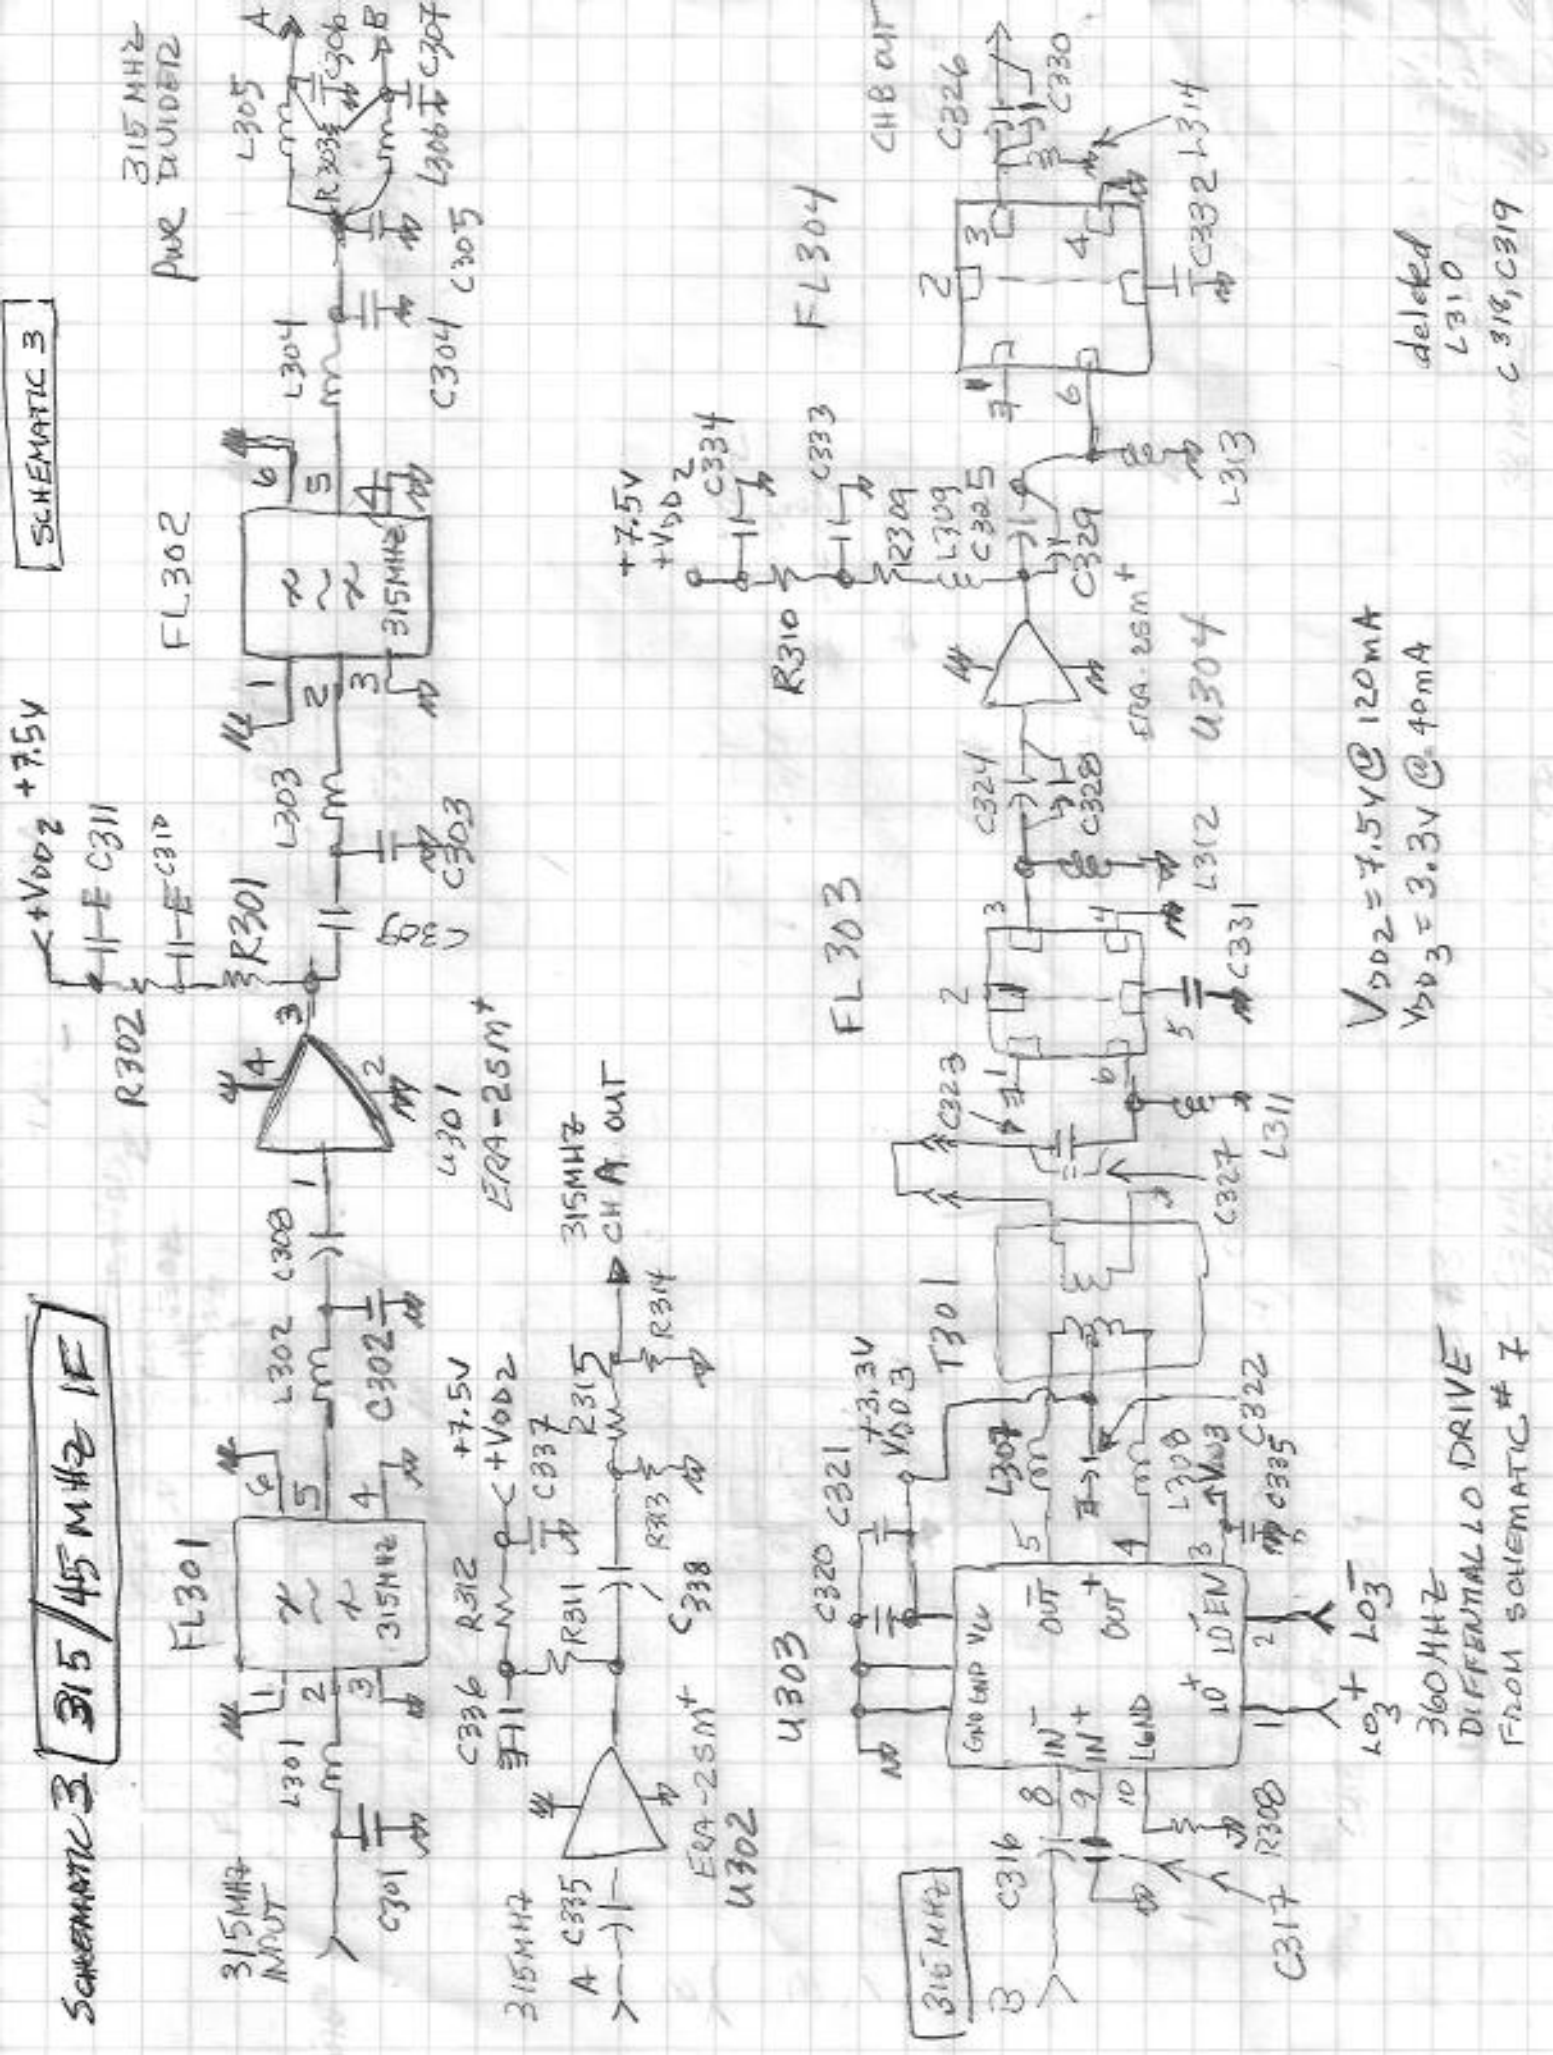 SCHEMATIC 3
315/45 MHz IF
SCHEMATIC 3
315 MHz
INPUT
C301
L301
FL301
1
2
3
315MHz
6
5
4
L302
C302
C308
1
4
2
3
U301
ERA-2sm+
R302
<+VDD2 +7.5V
C311
C310
R301
C309
C303
L303
FL302
1
2
3
315MHz
6
5
4
L304
C304
C305
315 MHz
PWR DIVIDER
L305
R303
C306
L306
C307
A
B
315MHz
A
C335
ERA-2sm+
U302
C336
R312
R311
+7.5V
<+VDD2
C337
C338
R313
R315
R314
315MHz
CH A OUT
315 MHz
B
C316
C317
R308
U303
8
9
10
GND
GND
VCC
IN-
IN+
LGND
OUT-
OUT+
LO+
LO-
EN
1
2
3
4
5
C320
C321
+3.3V
VDD3
L307
L308
VDD3
C335
C322
T301
LO3+
LO3-
360MHz
DIFFERNTIAL LO DRIVE
FROM SCHEMATIC # 7
C323
C327
L311
FL303
1
2
3
4
5
6
C331
L312
C324
C328
ERA-2sm+
U304
+7.5V
+VDD2
C334
C333
R310
R309
L309
C325
C329
L313
FL304
2
3
4
6
C332
L314
C326
C330
CHB OUT
VDD2 = 7.5V @ 120mA
VDD3 = 3.3V @ 40mA
deleted
L310
C318, C319